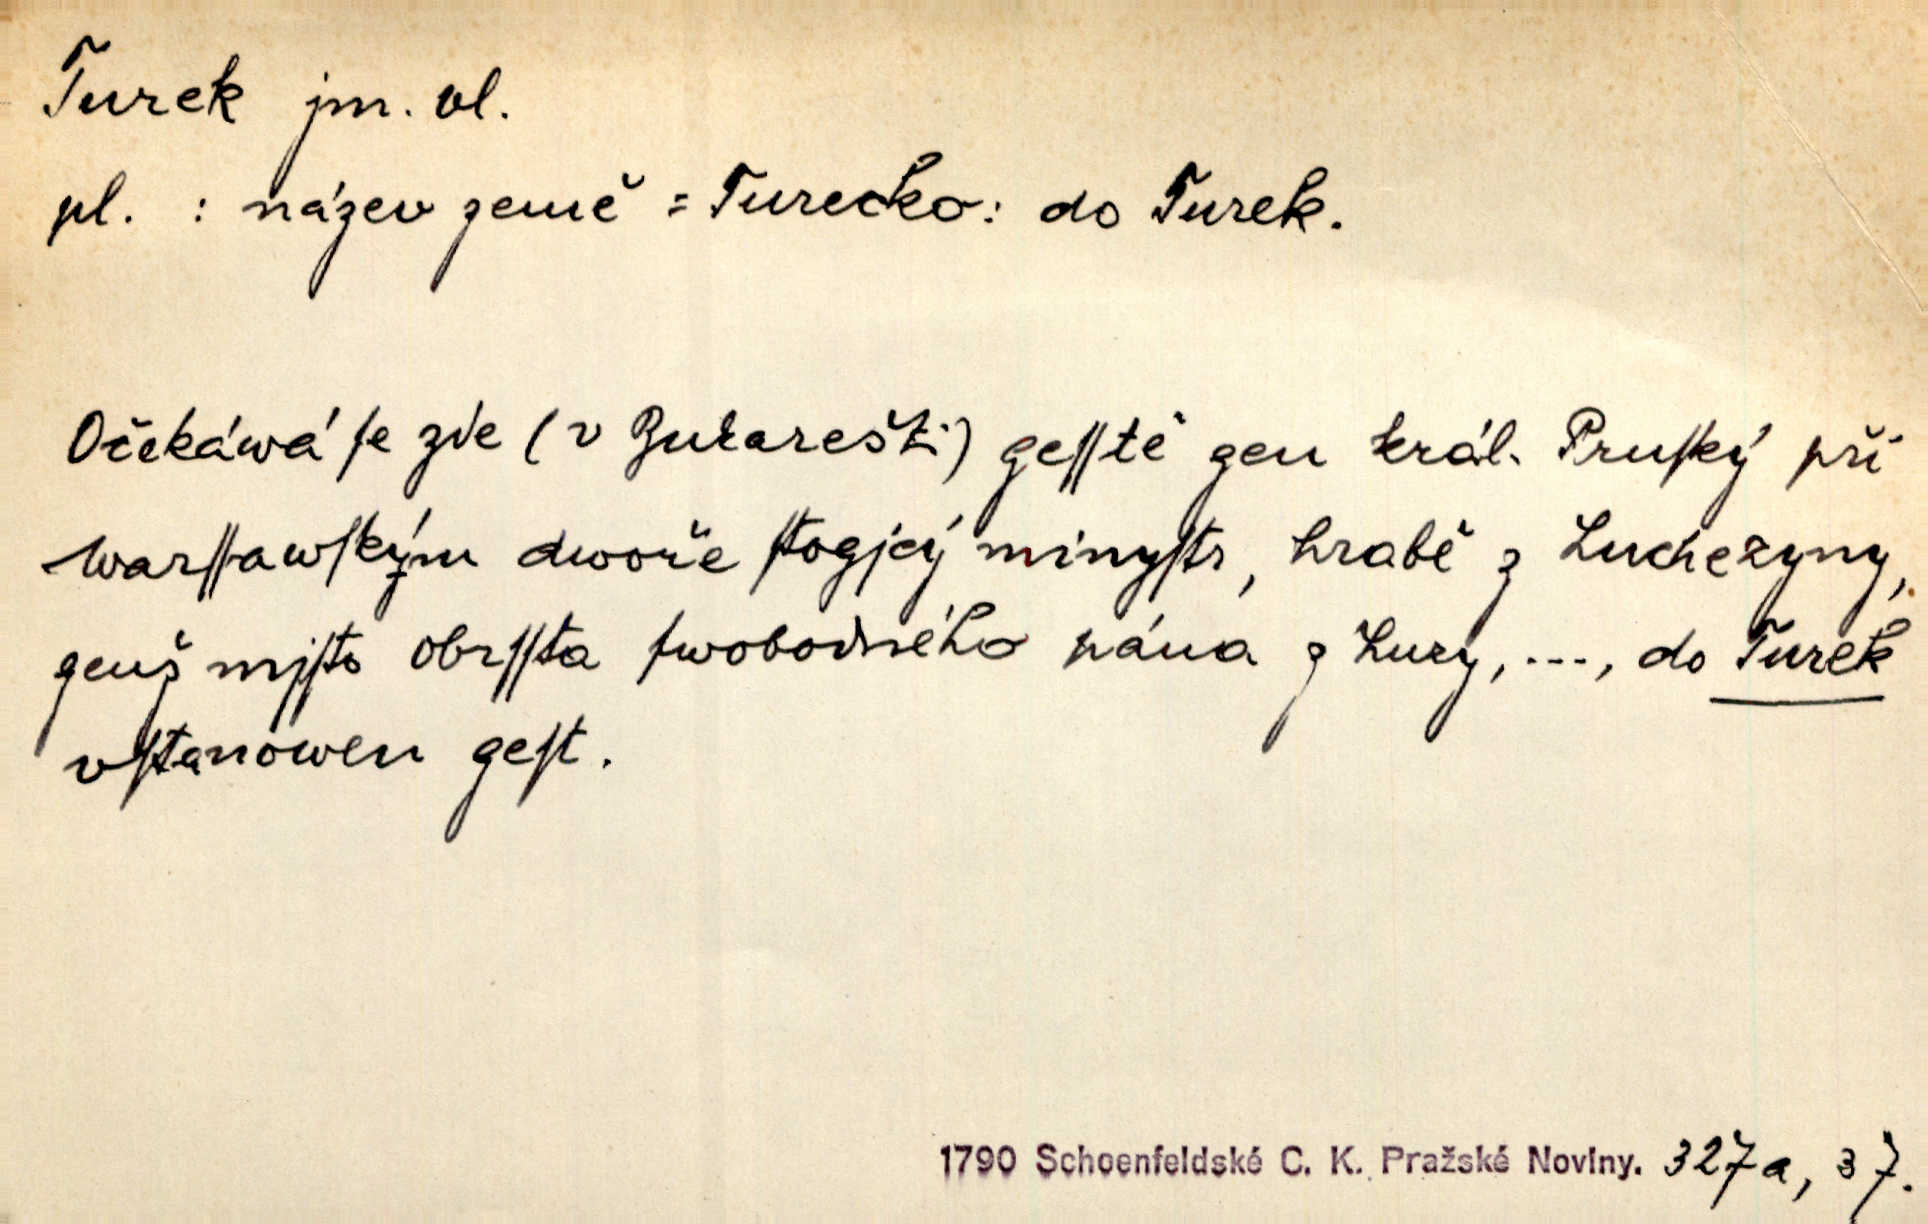 Turek jm. vl.
pl. : název země = Turecko: do Turek.
Očekáwá ſe zde (v Bukarešti) geſſtě gen král. Pruſký při
warſſawſkým dwoře ſtogjcý minyſtr, hrabě z Luchezyny,
genž mjſto obrſſta ſwobodného pána z Luzy, ..., do Turek
vſtanowen geſt.
1790 Schoenfeldské C. K. Pražské Noviny. 327a, 37.